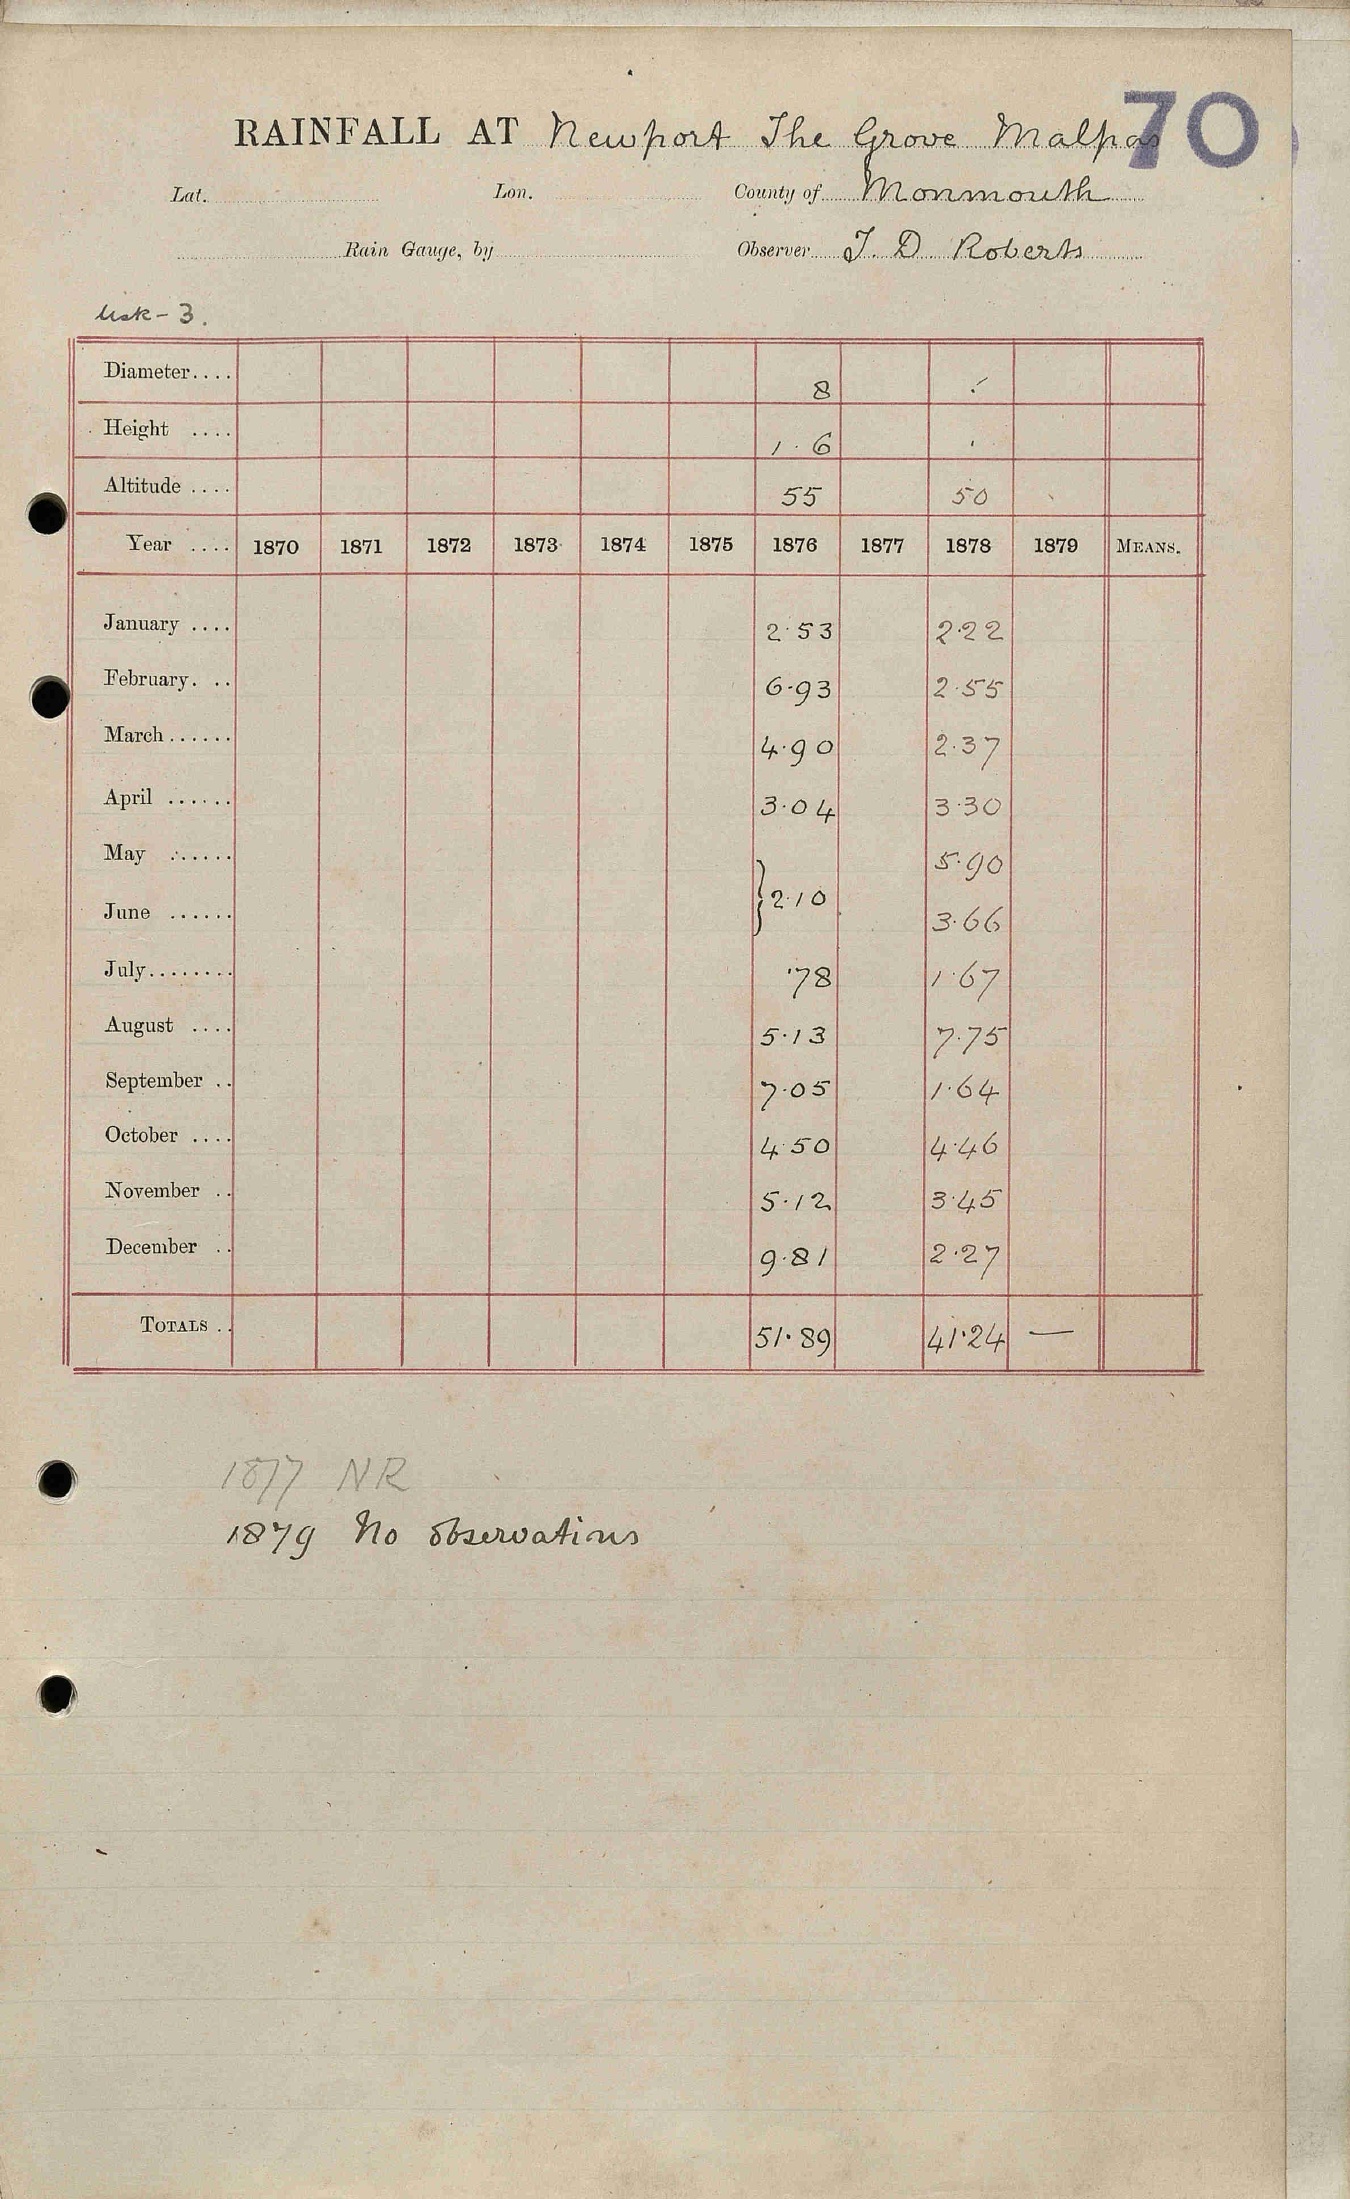 70
RAINFALL AT Newport The Grove Malpas
Lat. Lon. County of Monmouth
Rain Gauge, by Observer T. D. Roberts
Usk - 3.
Diameter.... 8
Height .... 1 . 6
Altitude .... 55 50
Year .... 1870 1871 1872 1873 1874 1875 1876 1877 1878 1879 MEANS.
January .... 2.53 2.22
February. .. 6.93 2.55
March...... 4.90 2.37
April ...... 3.04 3.30
May ...... 5.90
} 2.10
June ...... 3.66
July........ .78 1.67
August .... 5.13 7.75
September .. 7.05 1.64
October .... 4.50 4.46
November .. 5.12 3.45
December .. 9.81 2.27
TOTALS .. 51.89 41.24 —
1877 NR
1879 No observations